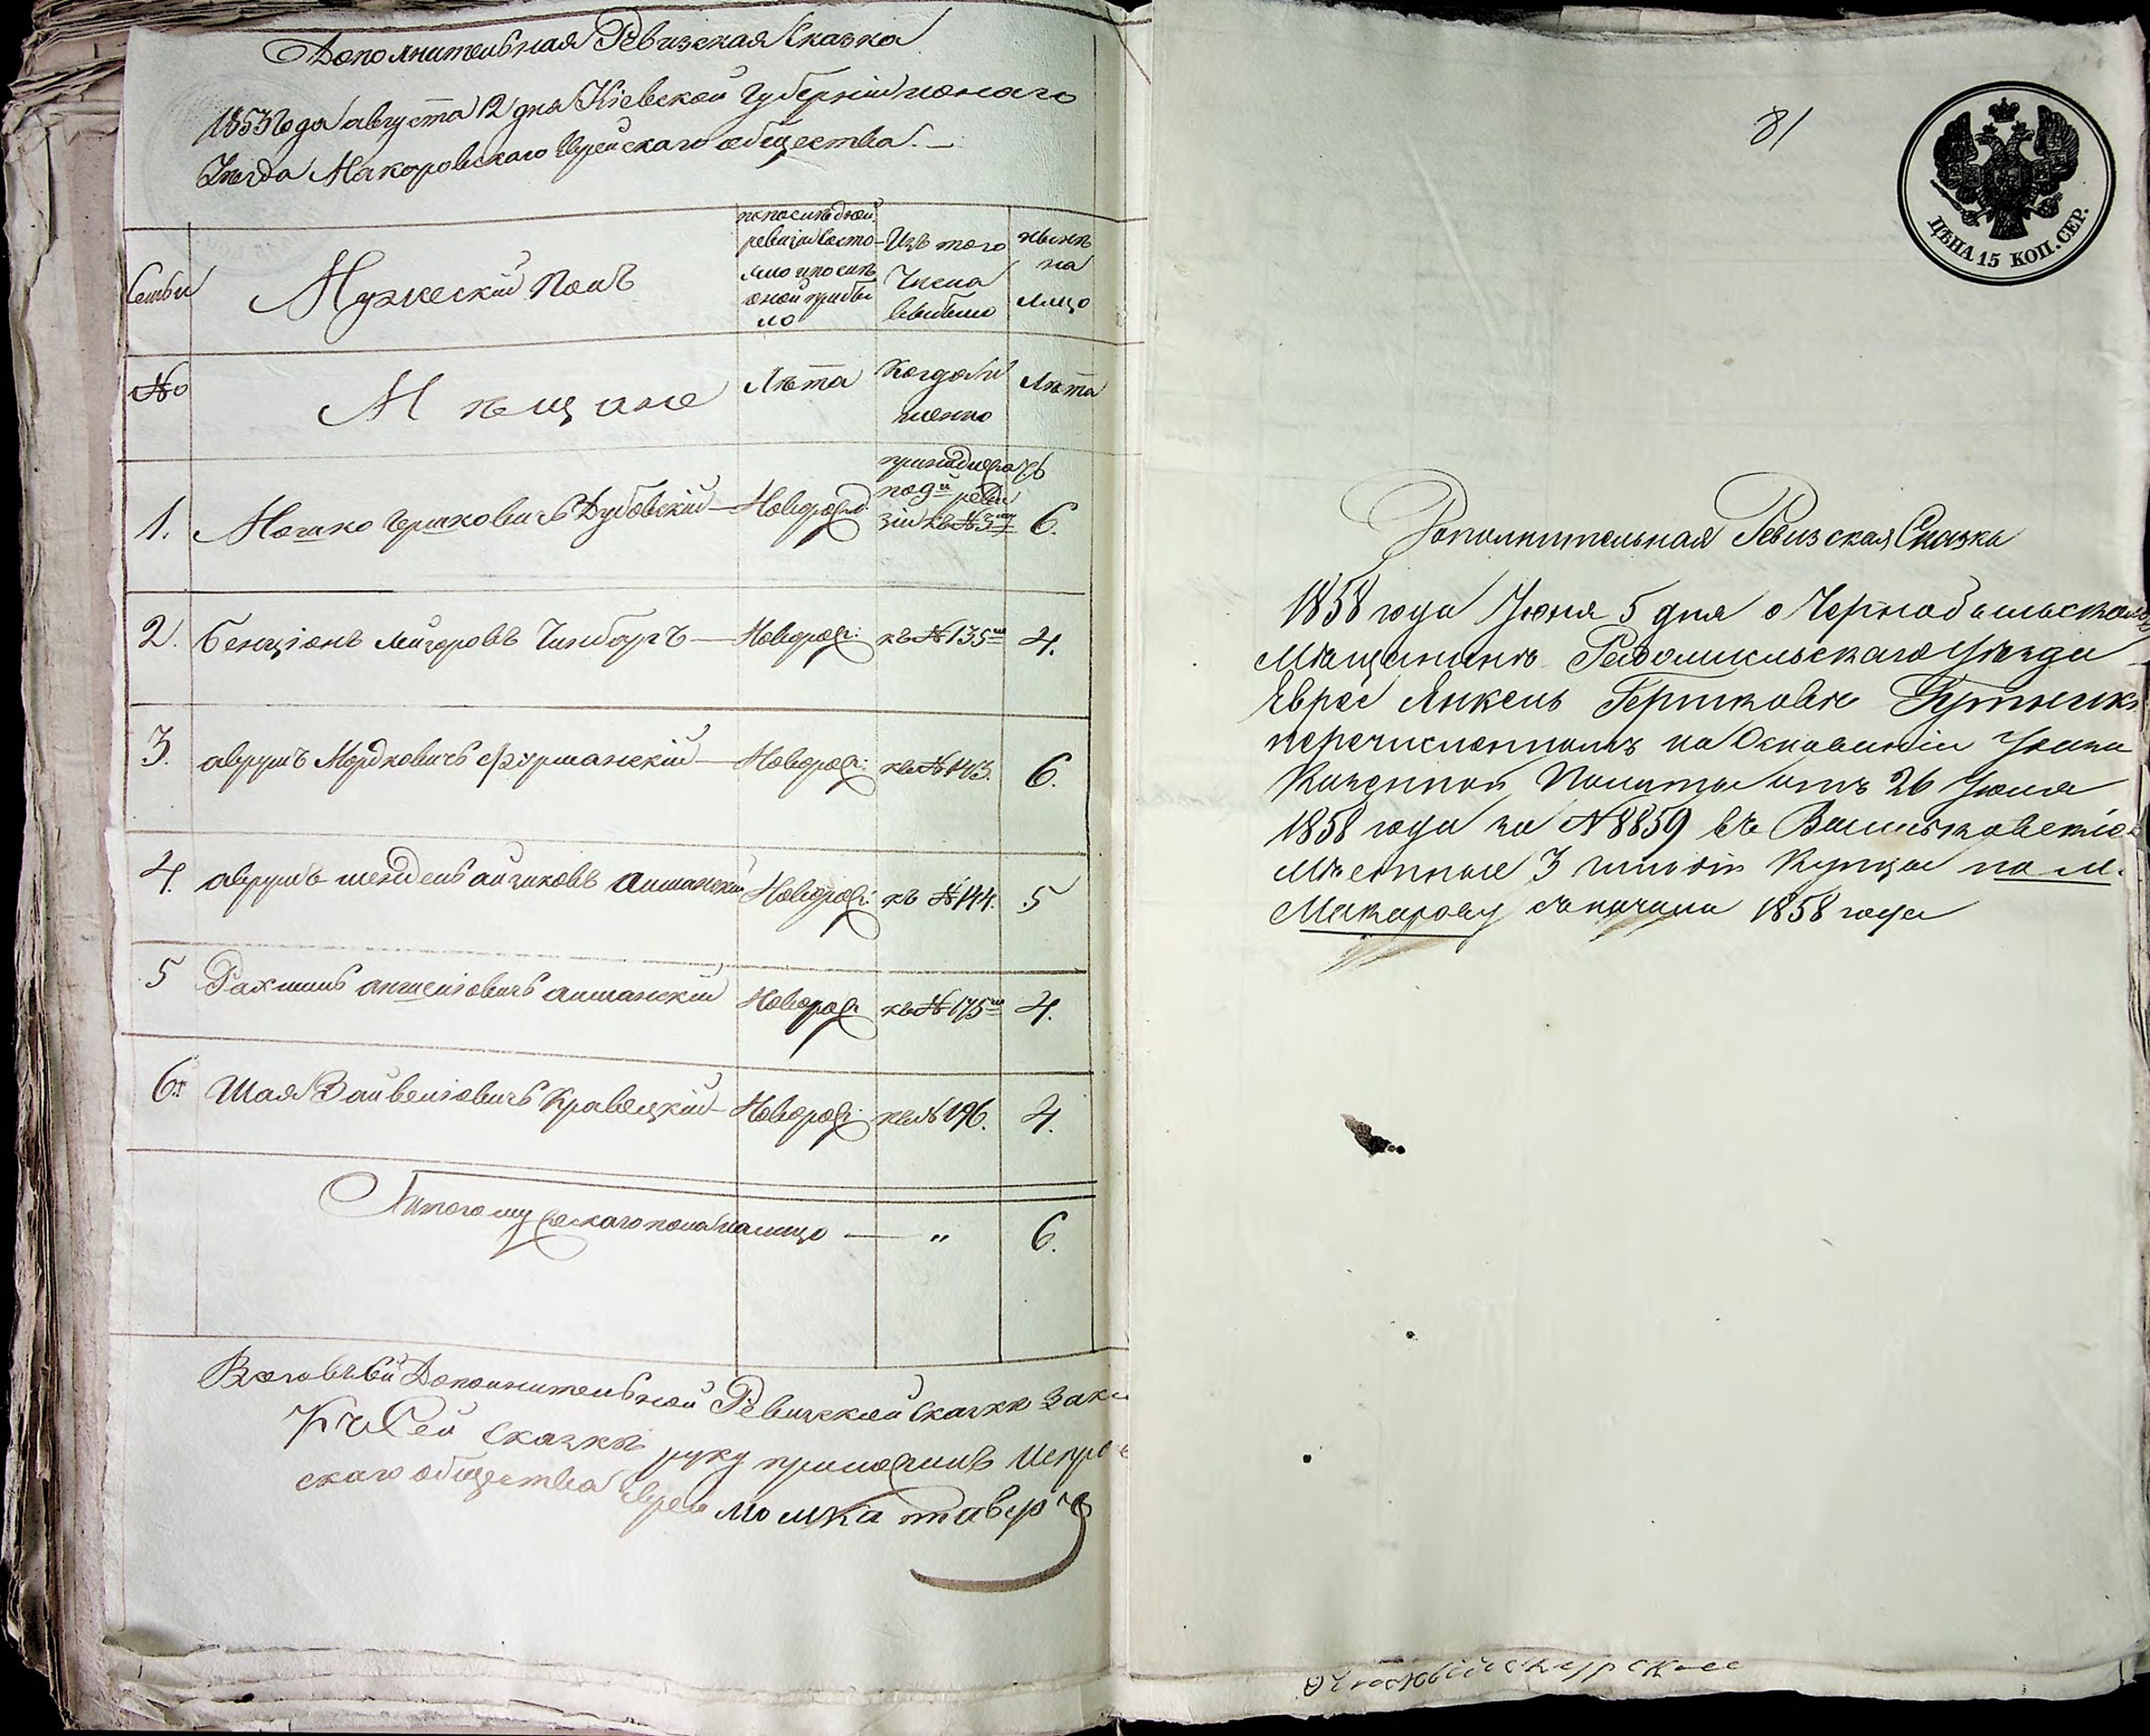 Дополнительная Ревизская Сказка
1853 года августа 12 дня Кіевской Губерніи
Уезда Макоровскаго Еврейскаго общества. —
Семьи
Мужескій Полъ
по последней
ревизіи состо-
яло и после
оной прибы
ло
Изъ того
Числа
выбыло
ныне
на
лицо
№
Мѣщане
Лѣта
Когда И
менно
Лѣта
1. Мошко Гершковичъ Дубовскій — Новорож. 6.
принадлежатъ
по 9й реви
зіи къ № 3му
2. Бенціонъ Лейзоровъ Гинборгъ — Новорож: къ № 135му 4.
3. аврумъ Мордковичъ Фурманскій — Новорож: къ № 143. 6.
4. аврумъ мендель айзиковъ Новорож: къ № 144. 5
5 Рахмиль Новорож: къ № 175му 4.
6. Шая Зайвелювичъ Кравецкій — Новорож: къ № 196. 4.
Итого мужескаго пола налицо — " 6.
Дополнительной Ревизской Сказке
Къ Сей сказкѣ руку приложилъ
скаго общества еврей мошка
81
ЦѢНА 15 КОП. СЕР.
Дополнительная Ревизская Сказка
1858 года Іюня 5 дня о Чернобыльском
Мѣщанинѣ Радомысльскаго Уѣзда
Еврее Янкель Гершкове
перечисленномъ на Основаніи Указа
Казенной Палаты отъ 26 Іюня
1858 года за № 8859 въ Васильковскіе
Мѣстные 3 гильдіи Купцы по м.
Макарову съ начала 1858 года